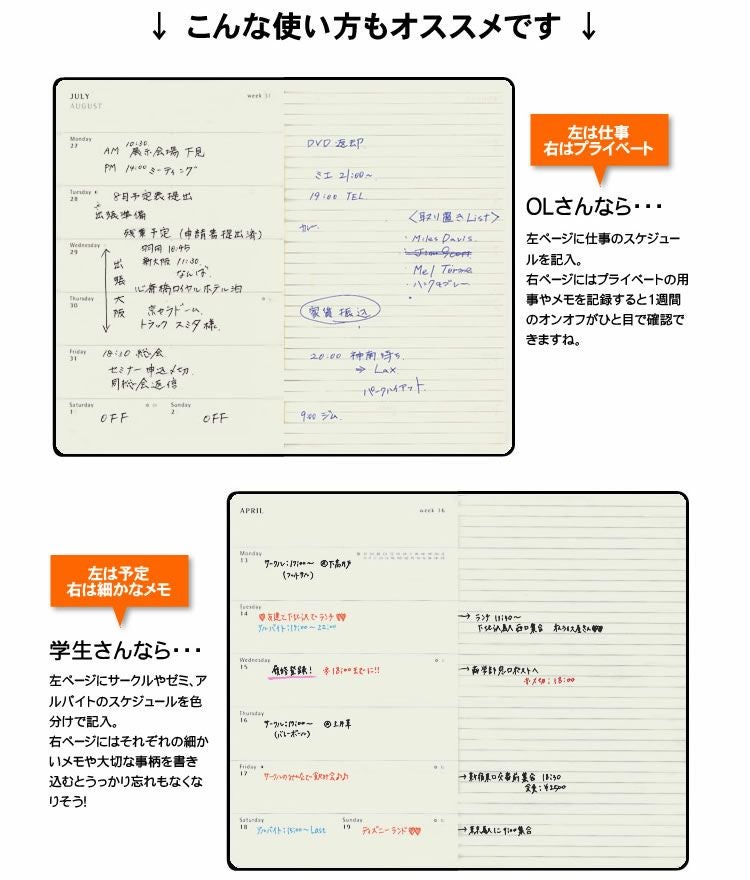 ↓ こんな使い方もオススメです ↓
JULY
AUGUST
week 31
Monday
27
AM 10:30 展示会場 下見
PM 14:00 ミーティング
Tuesday
28
8月予定表提出
出張準備
残業予定 (申請書提出済)
Wednesday
29
羽田 10:45
新大阪 11:30
なんば
心斎橋ロイヤルホテル泊
出張大阪
Thursday
30
京セラドーム
トラック スミタ様
Friday
31
18:30 総会
セミナー申込〆切
月総会返信
Saturday
1
OFF
Sunday
2
OFF
DVD 返却
ミエ 21:00~
19:00 TEL
カレー
<取り置きList>
・Miles Davis
・Mel Torme
家賃振込
20:00 神南待ち
⇒ Lax
パークハイアット
9:00 ジム
左は仕事
右はプライベート
OLさんなら・・・
左ページに仕事のスケジュー
ルを記入。
右ページにはプライベートの用
事やメモを記録すると1週間
のオンオフがひと目で確認で
きますね。
左は予定
右は細かなメモ
学生さんなら・・・
左ページにサークルやゼミ、ア
ルバイトのスケジュールを色
分けで記入。
右ページにはそれぞれの細か
いメモや大切な事柄を書き
込むとうっかり忘れもなくな
りそう!
APRIL
week 16
Monday
13
サークル:17:00~ @下高井戸
(フットサル)
Tuesday
14
♡友達と下北沢でランチ♡♡
アルバイト:17:00~22:00
Wednesday
15
履修登録! ※18:00までに!!
Thursday
16
サークル:17:00~ @上井草
(バレーボール)
Friday
17
サークルの仲間で歓迎会♪♪
Saturday
18
アルバイト:15:00~Last
Sunday
19
ディズニーランド♡♡
→ ランチ 11:30~
下北沢駅南口集合
→ 商学部窓口ポストへ
※〆切:18:00
→ 新宿東口交番前集合 18:30
会費:¥2500
→ 東京駅に9:00集合